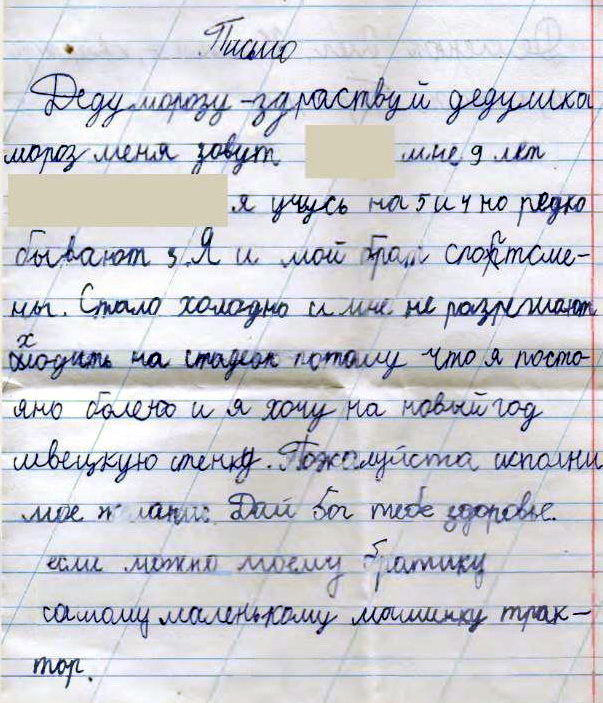 Письмо
Деду морозу - здраствуй дедушка
мороз меня зовут мне 9 лет
я учусь на 5 и 4 но редко
бывают 3. Я и мой брат спортсме-
ны. Стало холодно и мне не разрешают
ходить на стадеон потому что я посто-
яно болею и я хочу на новый год
швецкую стенку. Пожалуйста исполни
мое желание Дай бог тебе здоровье.
если можно моему братику
самому маленькому машинку трак-
тор.